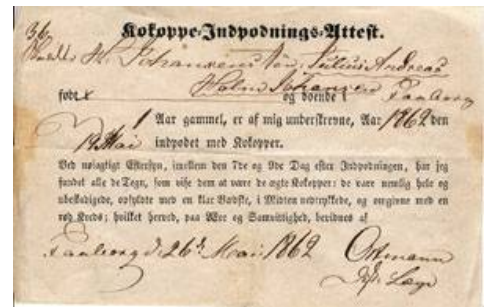 Kokoppe-Indpodnings-Attest.
36.
H. Johansens Søn, Julius Andreas
Holm Johansen
født og boende i Faaborg
1 Aar gammel, er af mig underskrevne, Aar 1862 den
19 Mai indpodet med Kokopper.
Ved nøiagtigt Eftersyn, imellem den 7de og 9de Dag efter Indpodningen, har jeg
fundet alle de Tegn, som vise dem at være de ægte Kokopper: de vare nemlig hele og
ubeskadigede, opfyldte med en klar Vædske, i Midten nedtrykkede, og omgivne med en
rød Kreds; hvilket herved, paa Ære og Samvittighed, bevidnes af
Faaborg d. 26de Mai 1862
Læge